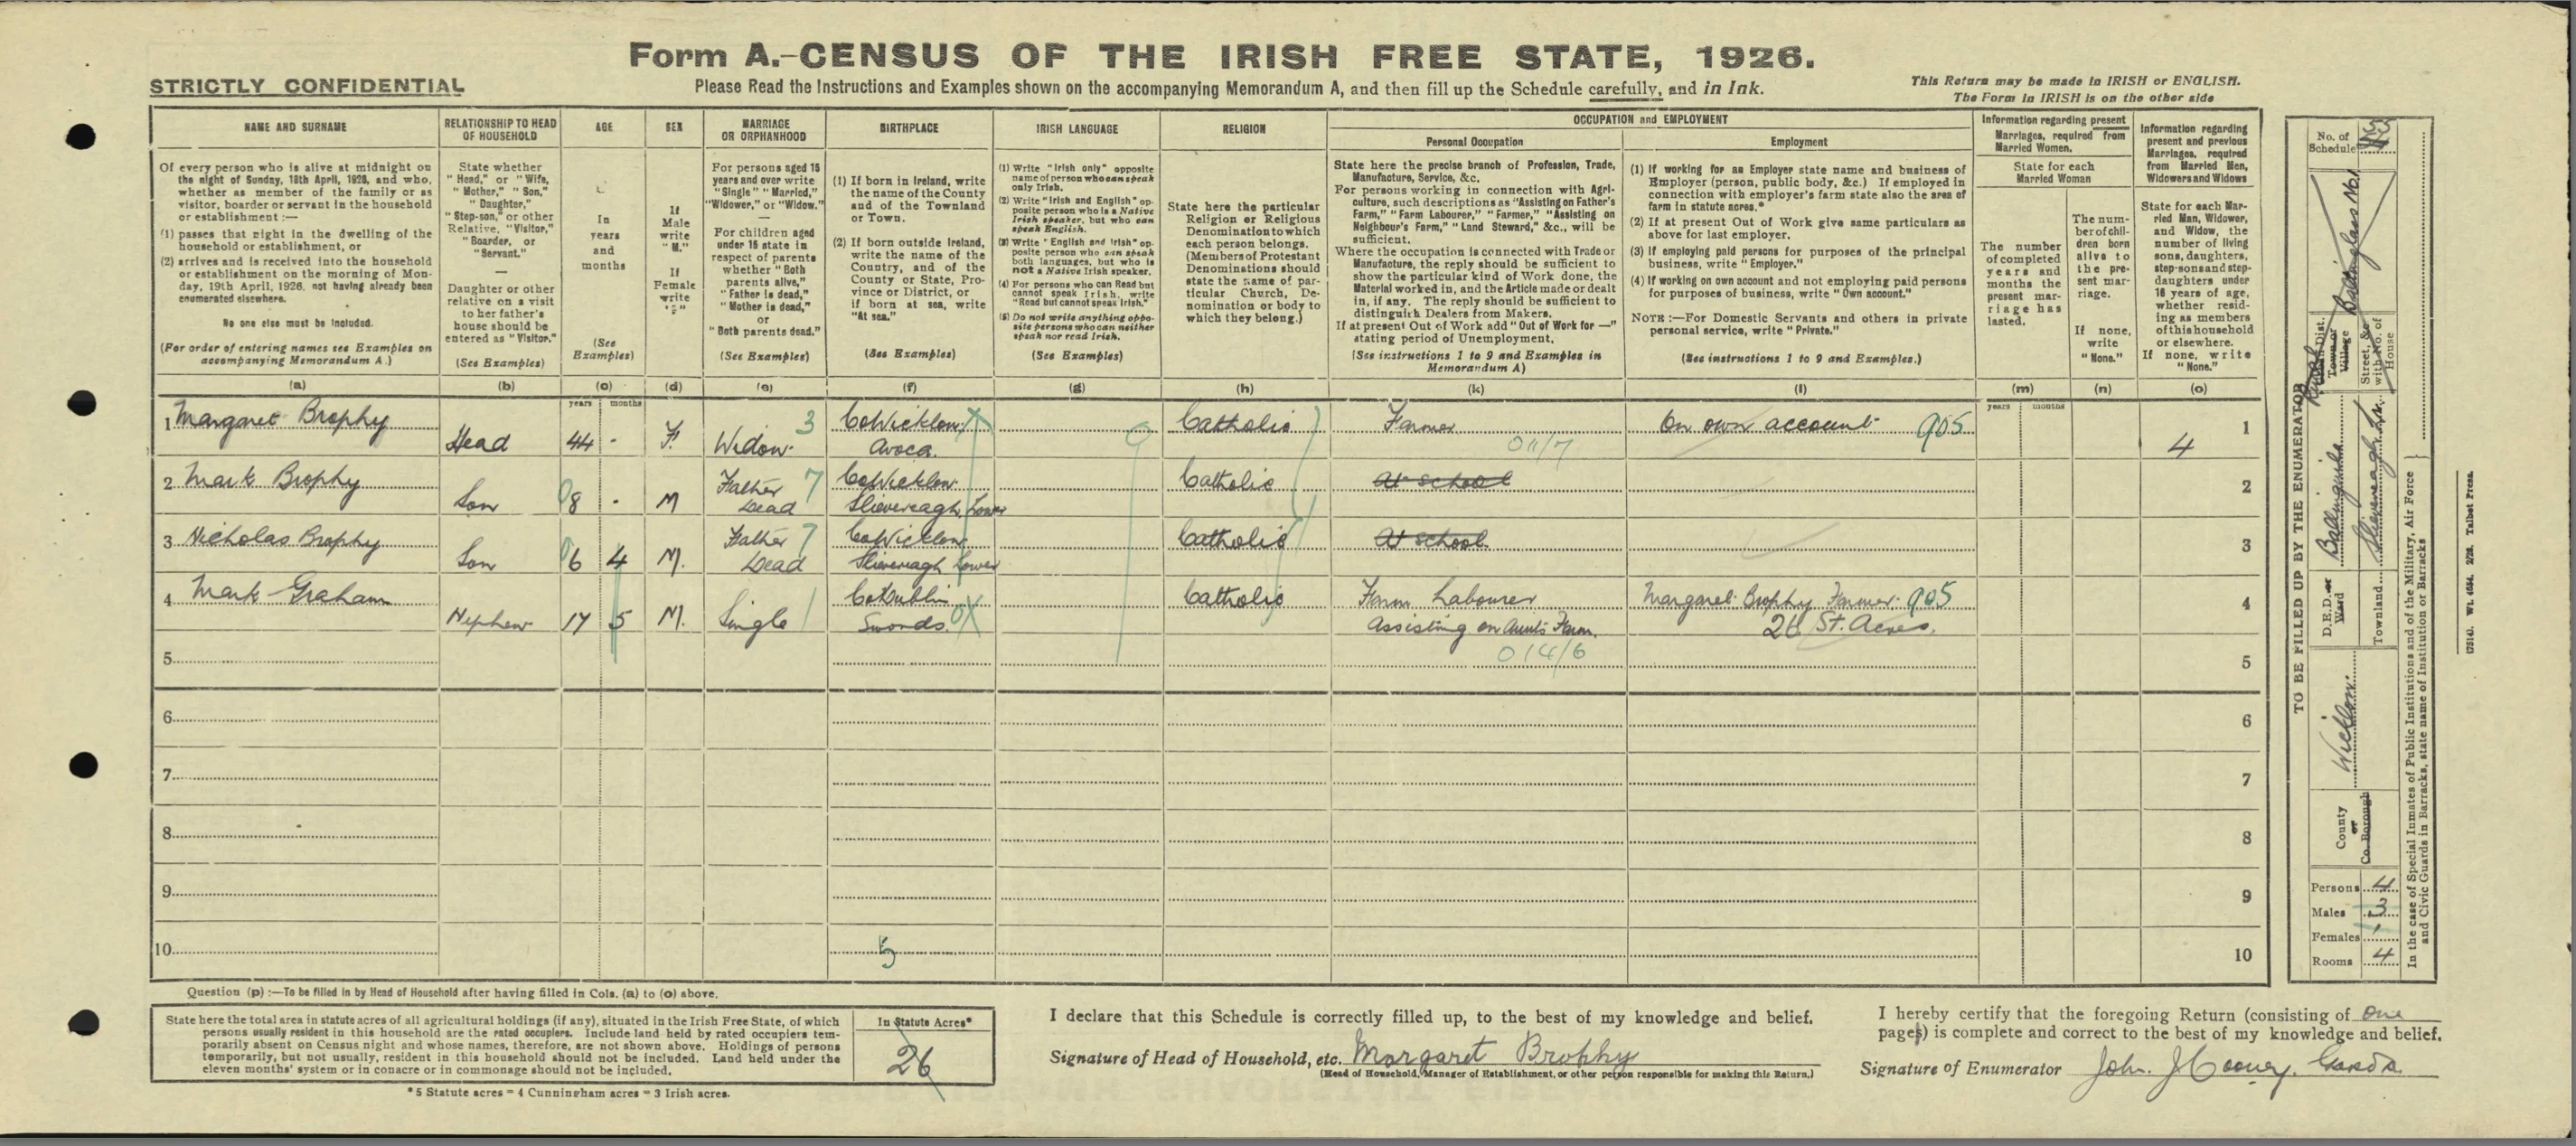 Form A.-CENSUS OF THE IRISH FREE STATE, 1926.
STRICTLY CONFIDENTIAL
Please Read the Instructions and Examples shown on the accompanying Memorandum A, and then fill up the Schedule carefully, and in Ink.
This Return may be made in IRISH or ENGLISH.
The Form in IRISH is on the other side
NAME AND SURNAME
Of every person who is alive at midnight on
the night of Sunday, 18th April, 1926, and who,
whether as member of the family or as
visitor, boarder or servant in the household
or establishment :—
(1) passes that night in the dwelling of the
household or establishment, or
(2) arrives and is received into the household
or establishment on the morning of Mon-
day, 19th April, 1926, not having already been
enumerated elsewhere.
No one else must be included.
(For order of entering names see Examples on
accompanying Memorandum A.)
(a)
RELATIONSHIP TO HEAD
OF HOUSEHOLD
State whether
"Head," or "Wife,
"Mother," "Son,"
"Daughter,"
"Step-son," or other
Relative, "Visitor,"
"Boarder, or
"Servant."
Daughter or other
relative on a visit
to her father's
house should be
entered as "Visitor."
(See Examples)
(b)
AGE
In
years
and
months
(See
Examples)
(c)
SEX
If
Male
write
"M."
If
Female
write
"F."
(d)
MARRIAGE
OR ORPHANHOOD
For persons aged 15
years and over write
"Single" "Married,"
"Widower," or "Widow."
For children aged
under 15 state in
respect of parents
whether "Both
parents alive,"
"Father is dead,"
"Mother is dead,"
or
"Both parents dead."
(See Examples)
(e)
BIRTHPLACE
(1) If born in Ireland, write
the name of the County
and of the Townland
or Town.
(2) If born outside Ireland,
write the name of the
Country, and of the
County or State, Pro-
vince or District, or
if born at sea, write
"At sea."
(See Examples)
(f)
IRISH LANGUAGE
(1) Write "Irish only" opposite
name of person who can speak
only Irish.
(2) Write "Irish and English" op-
posite person who is a Native
Irish speaker, but who can
speak English.
(3) Write "English and Irish" op-
posite person who can speak
both languages, but who is
not a Native Irish speaker.
(4) For persons who can Read but
cannot speak Irish, write
"Read but cannot speak Irish."
(5) Do not write anything oppo-
site persons who can neither
speak nor read Irish.
(See Examples)
(g)
RELIGION
State here the particular
Religion or Religious
Denomination to which
each person belongs.
(Members of Protestant
Denominations should
state the name of par-
ticular Church, De-
nomination or body to
which they belong.)
(h)
OCCUPATION and EMPLOYMENT
Personal Occupation
State here the precise branch of Profession, Trade,
Manufacture, Service, &c.
For persons working in connection with Agri-
culture, such descriptions as "Assisting on Father's
Farm," "Farm Labourer," "Farmer," "Assisting on
Neighbour's Farm," "Land Steward," &c., will be
sufficient.
Where the occupation is connected with Trade or
Manufacture, the reply should be sufficient to
show the particular kind of Work done, the
Material worked in, and the Article made or dealt
in, if any. The reply should be sufficient to
distinguish Dealers from Makers.
If at present Out of Work add "Out of Work for —"
stating period of Unemployment.
(See instructions 1 to 9 and Examples in
Memorandum A)
(k)
Employment
(1) If working for an Employer state name and business of
Employer (person, public body, &c.) If employed in
connection with employer's farm state also the area of
farm in statute acres.*
(2) If at present Out of Work give same particulars as
above for last employer.
(3) If employing paid persons for purposes of the principal
business, write "Employer."
(4) If working on own account and not employing paid persons
for purposes of business, write "Own account."
NOTE :—For Domestic Servants and others in private
personal service, write "Private."
(See instructions 1 to 9 and Examples.)
(l)
Information regarding present
Marriages, required from
Married Women.
State for each
Married Woman
The number
of completed
years and
months the
present mar-
riage has
lasted.
(m)
The num-
ber of chil-
dren born
alive to
the pre-
sent mar-
riage.
If none,
write
"None."
(n)
Information regarding
present and previous
Marriages, required
from Married Men,
Widowers and Widows
State for each Mar-
ried Man, Widower,
and Widow, the
number of living
sons, daughters,
step-sons and step-
daughters under
16 years of age,
whether resid-
ing as members
of this household
or elsewhere.
If none, write
"None."
(o)
years months
years months
1 Margaret Brophy Head 44 - F. Widow. 3 Co Wicklow. Avoca. Catholic Farmer 011/7 On own account 905 4 1
2 Mark Brophy Son 8 - M Father Dead 7 Co Wicklow. Slievereagh Lower Catholic At school 2
3 Nicholas Brophy Son 6 4 M. Father Dead 7 Co Wicklow Slievereagh Lower Catholic At school 3
4 Mark Graham Nephew 17 5 M. Single 1 Co Dublin Swords. Catholic Farm Labourer Assisting on Aunts Farm. 014/6 Margaret Brophy Farmer. 905 26 St. Acres. 4
5 5
6 6
7 7
8 8
9 9
10 5 10
Question (p) :—To be filled in by Head of Household after having filled in Cols. (a) to (o) above.
State here the total area in statute acres of all agricultural holdings (if any), situated in the Irish Free State, of which
persons usually resident in this household are the rated occupiers. Include land held by rated occupiers tem-
porarily absent on Census night and whose names, therefore, are not shown above. Holdings of persons
temporarily, but not usually, resident in this household should not be included. Land held under the
eleven months' system or in conacre or in commonage should not be included.
In Statute Acres*
26
*5 Statute acres = 4 Cunningham acres = 3 Irish acres.
I declare that this Schedule is correctly filled up, to the best of my knowledge and belief.
Signature of Head of Household, etc. Margaret Brophy
(Head of Household, Manager of Establishment, or other person responsible for making this Return.)
I hereby certify that the foregoing Return (consisting of one
pages) is complete and correct to the best of my knowledge and belief.
Signature of Enumerator John. J Cooney. Garda.
TO BE FILLED UP BY THE ENUMERATOR
County or Co. Borough Wicklow.
D.E.D. or Ward Ballinguile
Townland Slievereagh Lr.
Rural Dist. Town or Village Baltinglass No. 1
Street, &c with No. of House
No. of Schedule
Persons 4
Males 3
Females 1
Rooms 4
In the case of Special Inmates of Public Institutions and of the Military, Air Force
and Civic Guards in Barracks, state name of Institution or Barracks
(7514). Wt. 4634. 2/26. Talbot Press.